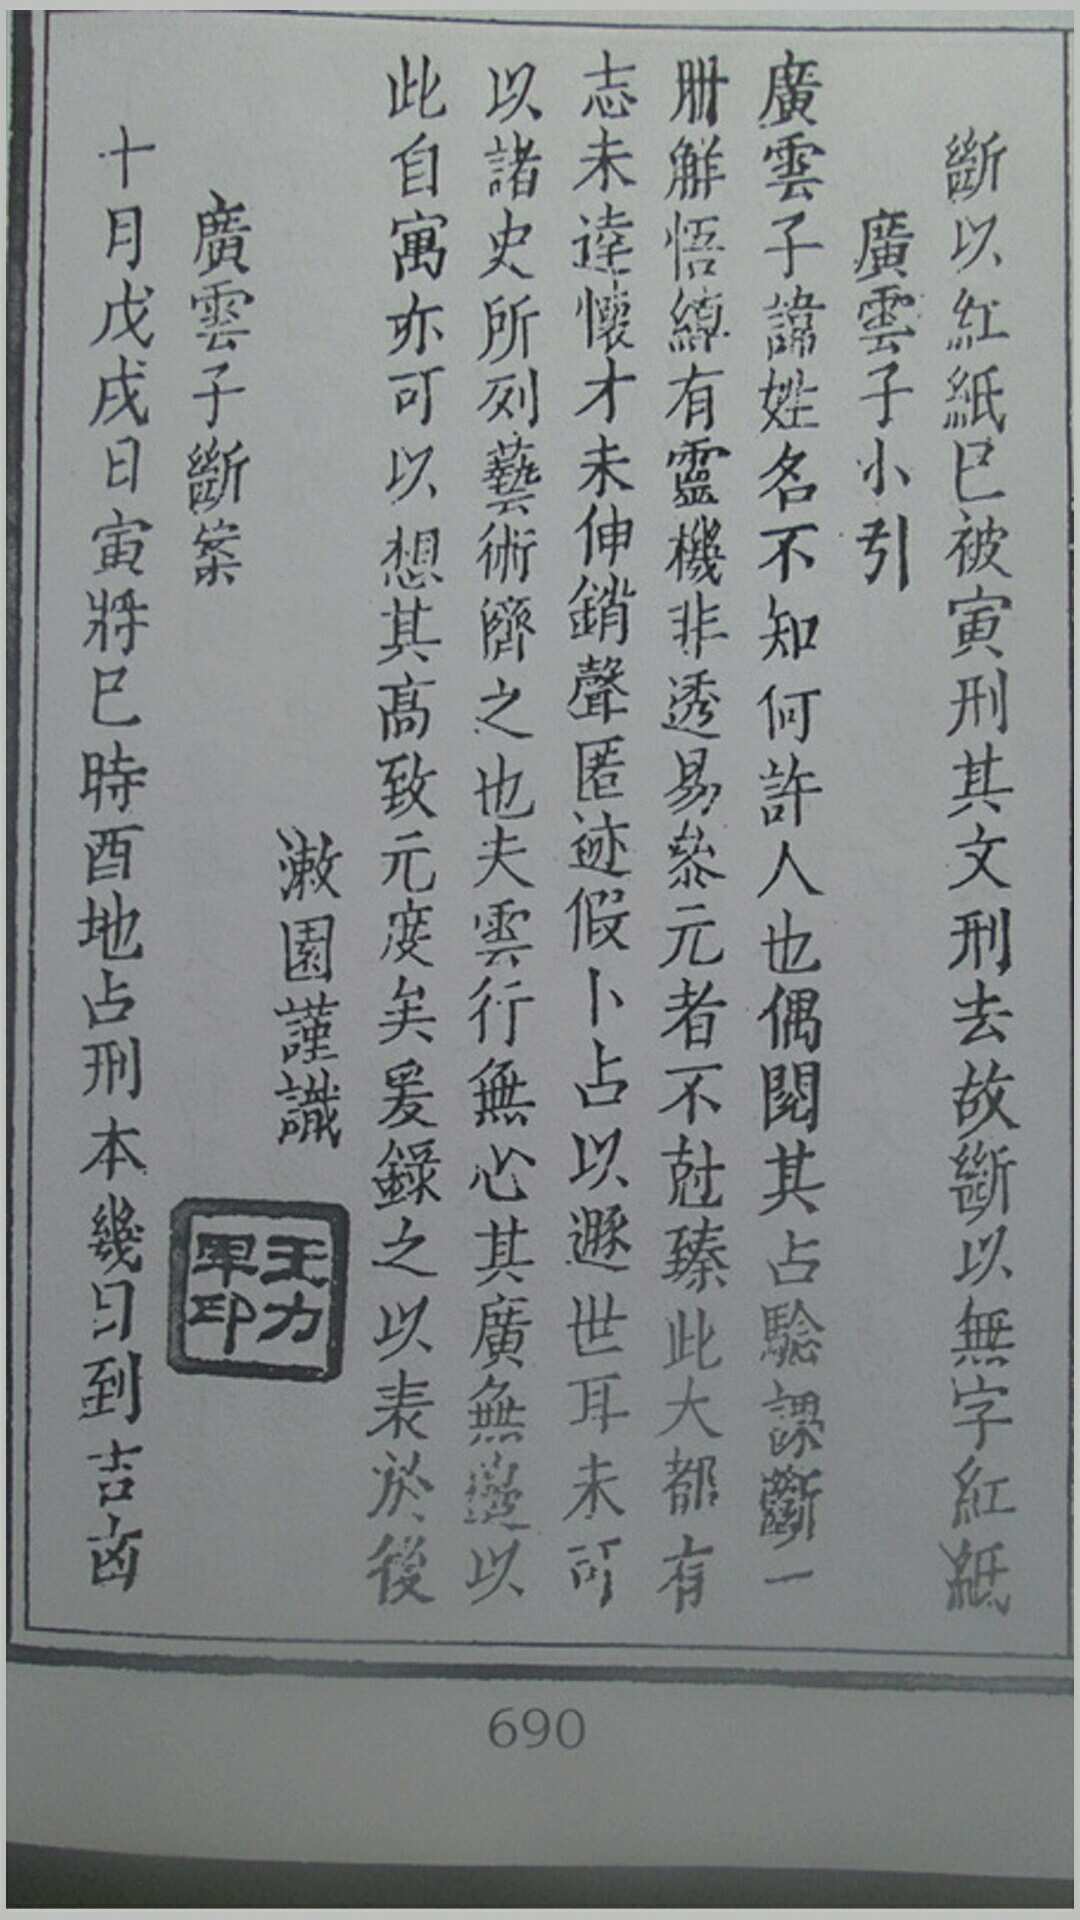 斷以紅紙巳被寅刑其文刑去故斷以無字紅紙
廣雲子小引
廣雲子諱姓名不知何許人也偶閱其占驗課斷一
冊解悟緣有靈機非透易叅元者不尅臻此大都有
志未達懷才未伸銷聲匿迹假卜占以遯世耳未可
以諸史所列藝術儕之也夫雲行無心其廣無邊以
此自寓亦可以想其高致元度矣爰錄之以表於後
漱園謹識
王力軍印
廣雲子斷案
十月戊戌日寅將巳時酉地占刑本幾日到吉凶
690